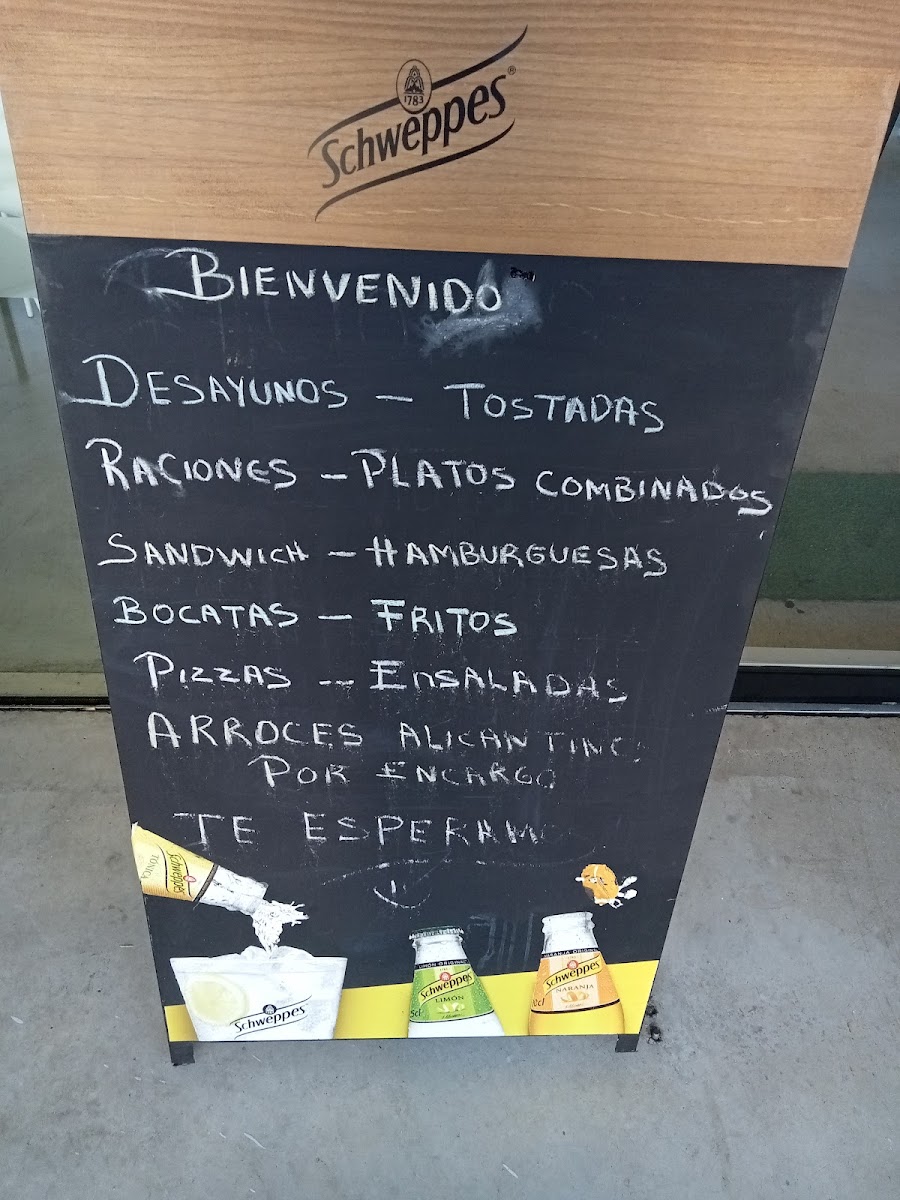 1783
Schweppes®
BIENVENIDO
DESAYUNOS - TOSTADAS
RACIONES - PLATOS COMBINADOS
SANDWICH - HAMBURGUESAS
BOCATAS - FRITOS
PIZZAS -- ENSALADAS
ARROCES ALICANTINO
POR ENCARGO
TE ESPERAMOS
TÓNICA
Schweppes
Schweppes
LIMÓN ORIGINAL
Schweppes
LIMÓN
NARANJA ORIGINAL
Schweppes
NARANJA